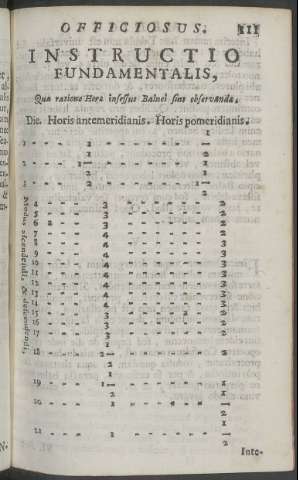 OFFICIOSUS. 111
INSTRUCTIO
FUNDAMENTALIS,
Qua ratione Horæ insessus Balnei sint observandæ.
Die. Horis antemeridianis. Horis pomeridianis.
1 - - - 1/2 - - - - - - 1/2
2 - - - 1 1/2 - - - - - - 1
3 - - - 2 - - - - - - 1 1/2
4 - - - 3 - - - - - - 2
5 - - - 3 - - - - - - 2
6 - - - 4 - - - - - - 2
7 - - - 4 - - - - - - 3
8 - - - 4 - - - - - - 3
9 - - - 4 - - - - - - 3
10 - - - 4 - - - - - - 3
11 - - - 4 - - - - - - 3
12 - - - 4 - - - - - - 3
13 - - - 4 - - - - - - 3
14 - - - 4 - - - - - - 2
15 - - - 3 - - - - - - 2
16 - - - 3 - - - - - - 2
17 - - - 3 - - - - - - 2
18 - - - 2 1/2 - - - - - - 2
19 - - - 1 1/2 - - - - - - 1
20 - - - 1 - - - - - - 1/2
21 - - - 1 - - - - - - 1/2
Modus ascendendi, & descendendi,
Inte-